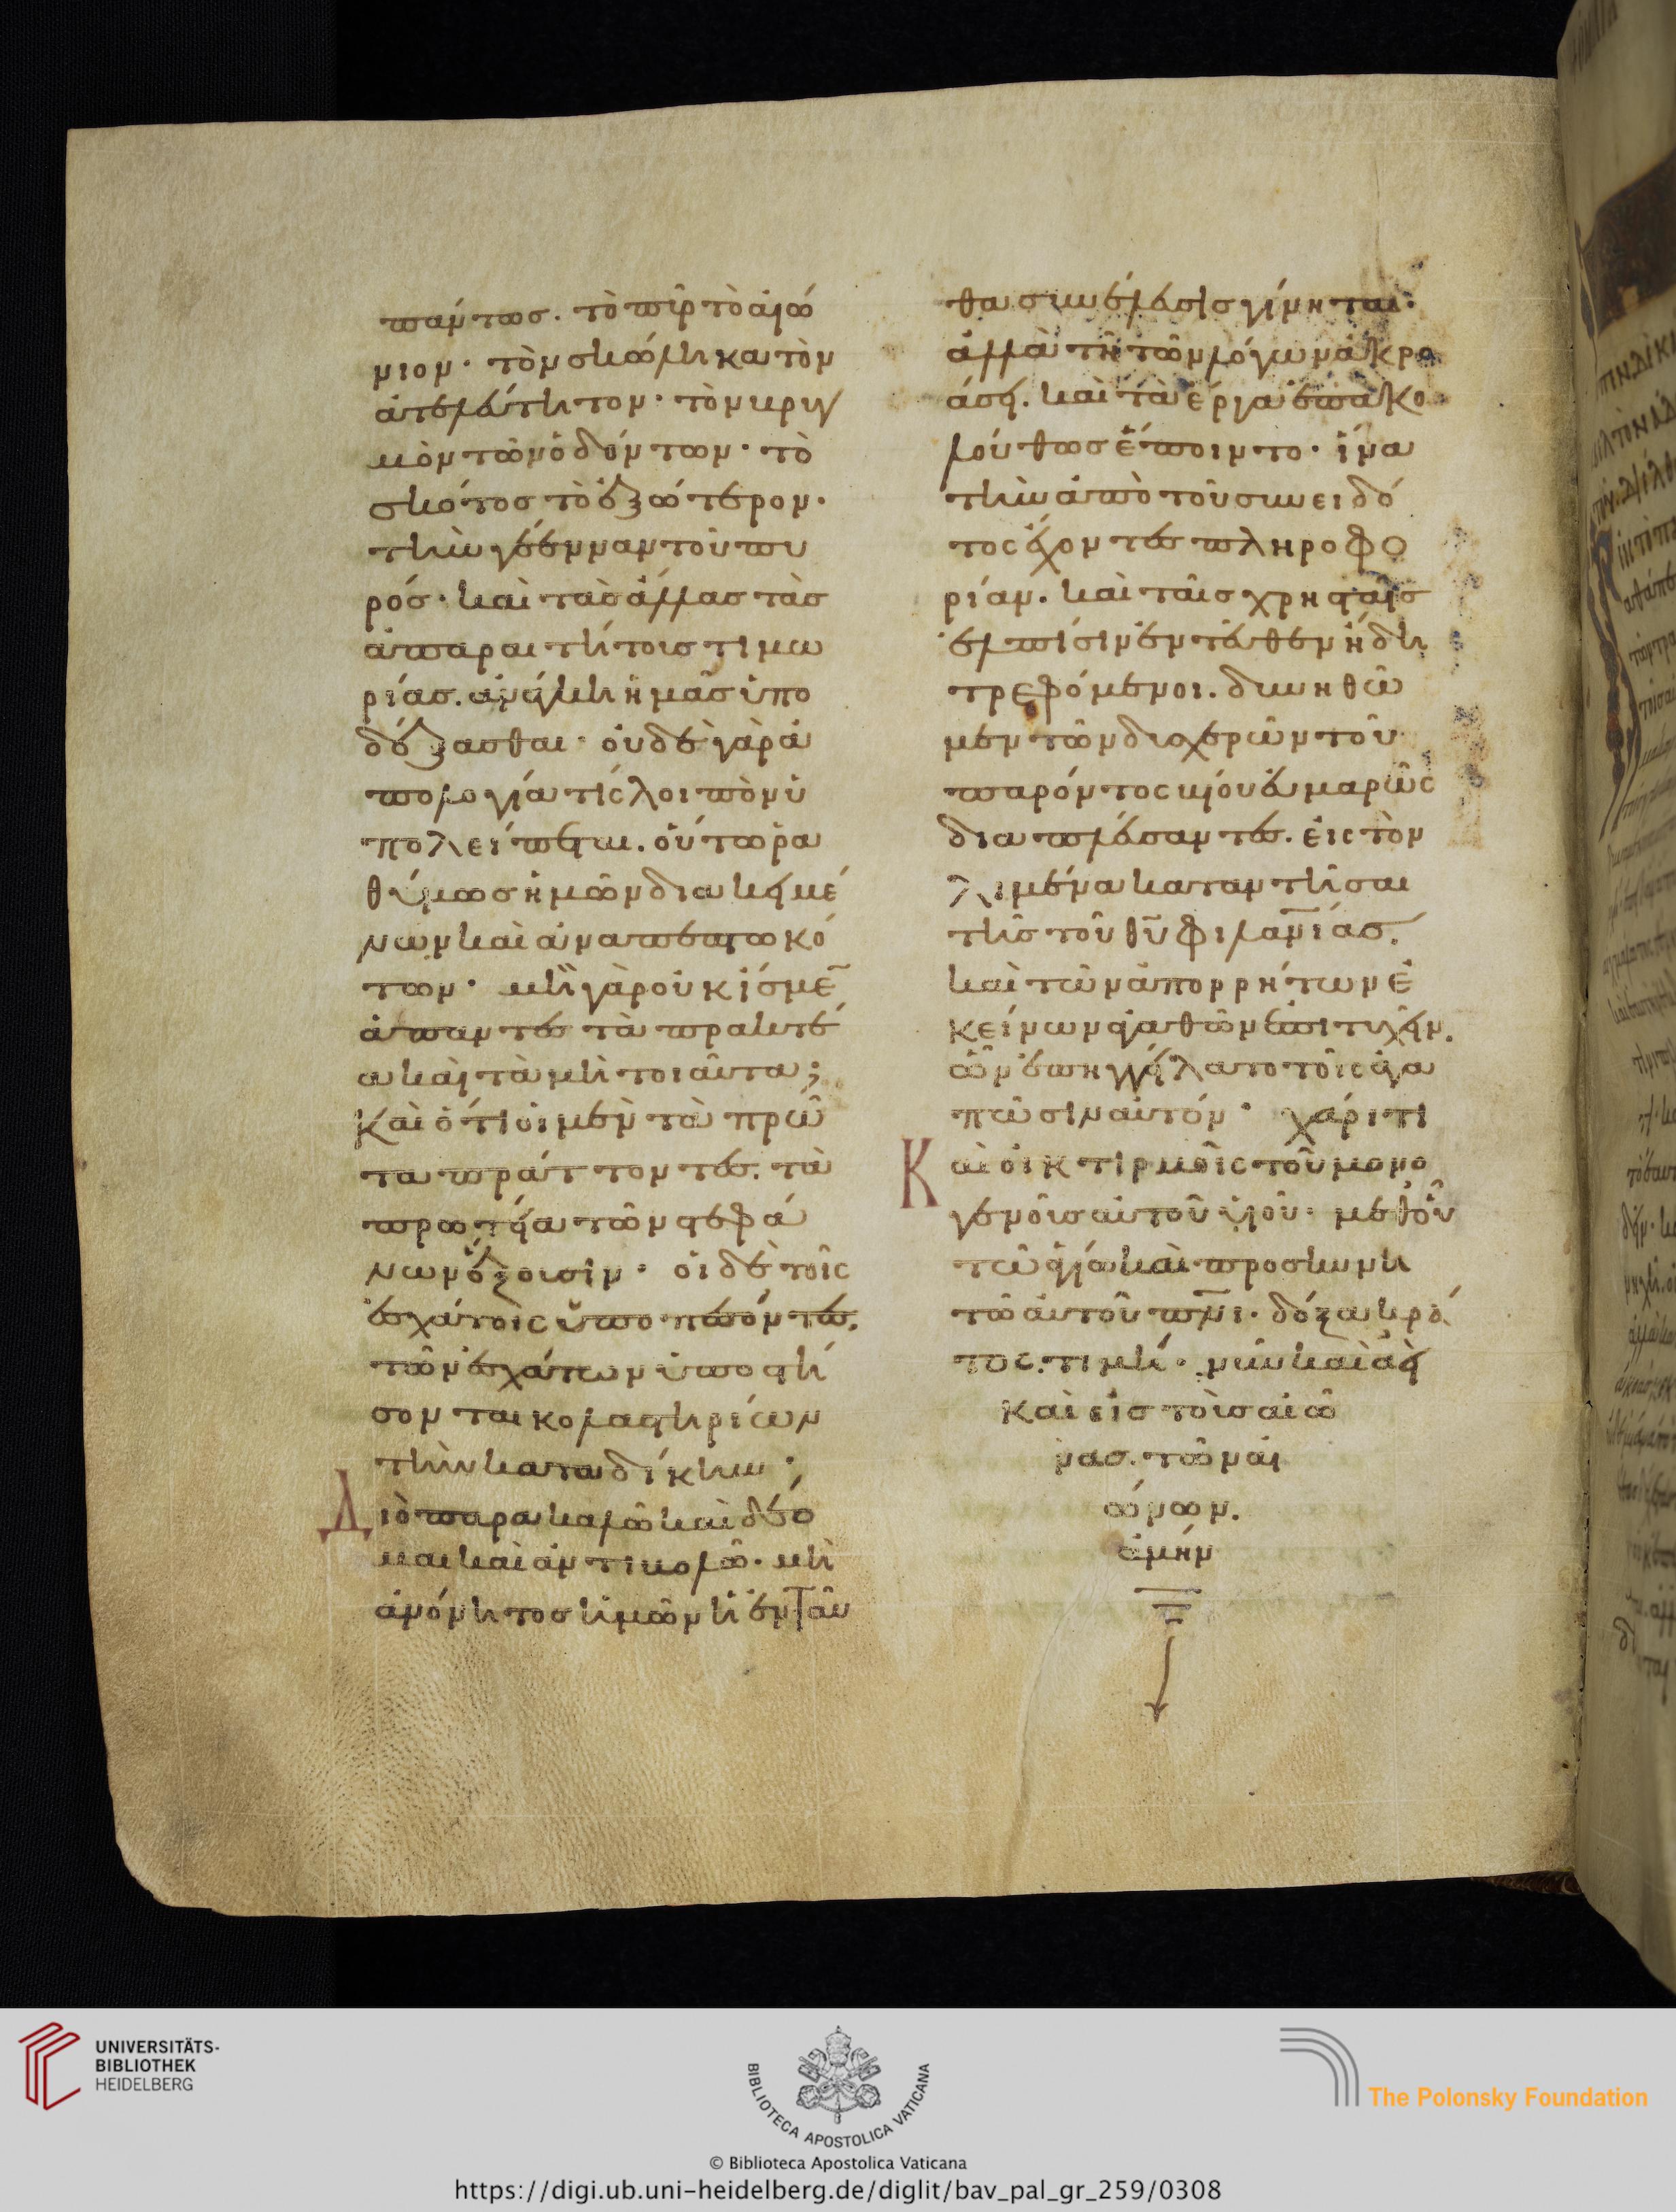 πάντως. τὸ πῦρ τὸ αἰώ
νιον· τὸν σκώληκα τὸν
ἀτελεύτητον· τὸν βρυγ
μὸν τῶν ὀδόντων· τὸ
σκότος τὸ ἐξώτερον·
τὴν γέενναν τοῦ πυ
ρός· καὶ τὰς ἄλλας τὰς
ἀπαραιτήτοις τιμω
ρίας. ἀνάγκη ἡμᾶς ὑπο
δέξασθαι· οὐδὲ γὰρ ἀ
πολογία τίς λοιπὸν ὑ
πολείπεται. οὕτω ῥα
θύμως ἡμῶν διακειμέ
νων καὶ ἀναπεπτωκό
των· μὴ γὰρ οὐκ ἴσμε̄
ἅπαντες τὰ πρακτέ
α καὶ τὰ μὴ τοιαῦτα;
Καὶ ὅτι οἱ μὲν τὰ πρῶ
τα πράττοντες. τὰ
πρωτεῖα τῶν στεφά
νων ἕξουσιν· οἱ δὲ τοῖς
ἐσχάτοις ὑποπεσόντες.
τῶν ἐσχάτων ὑποστή
σονται κολαστηρίων
τὴν καταδίκην·
Διὸ παρακαλῶ καὶ δέο
μαι καὶ ἀντιβολῶ· μὴ
ἀνόνητος ἡμῶν ἡ ἐνταῦ
θα συνέλευσις γίνηται·
ἀλλὰ τῇ τῶν λόγων ἀκρο
άσει. καὶ τὰ ἔργα ἐπακο
λούθως ἕποιντο· ἵνα
τὴν ἀπὸ τοῦ συνειδό
τος ἔχοντες πληροφο
ρίαν. καὶ ταῖς χρησταῖς
ἐλπίσιν ἐντεῦθεν ἤδη
τρεφόμενοι. δυνηθῶ
μεν τῶν δυσχερῶν τοῦ
παρόντος βίου εὐμαρῶς
διαπλεύσαντες. εἰς τὸν
λιμένα καταντῆσαι
τῆς τοῦ θῡ φιλαν̄ίας.
καὶ τῶν ἀπορρήτων ἐ
κείνων ἀγαθῶν ἐπιτυχεῖν.
ὧν ἐπηγγείλατο τοῖς ἀγα
πῶσιν αὐτόν· χάριτι
Καὶ οἰκτιρμοῖς τοῦ μονο
γενοῦς αὐτοῦ υἱοῦ· μεθ' οὗ
τῷ ἁγίῳ καὶ προσκυνη
τῷ αὐτοῦ πν̄ι· δόξα κρά
τος. τιμή· νῦν καὶ ἀεὶ
καὶ εἰς τοὺς αἰῶ
νας. τῶν αἰ
ώνων.
ἀμήν
UNIVERSITÄTS-
BIBLIOTHEK
HEIDELBERG
BIBLIOTECA APOSTOLICA VATICANA
The Polonsky Foundation
© Biblioteca Apostolica Vaticana
https://digi.ub.uni-heidelberg.de/diglit/bav_pal_gr_259/0308